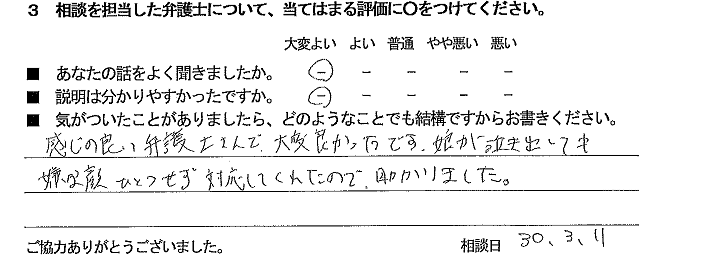 3 相談を担当した弁護士について、当てはまる評価に〇をつけてください。
大変よい よい 普通 やや悪い 悪い
■ あなたの話をよく聞きましたか。 － － － － －
■ 説明は分かりやすかったですか。 － － － － －
■ 気がついたことがありましたら、どのようなことでも結構ですからお書きください。
感じの良い弁護士さんで、大変良かったです。娘が泣き出しても
嫌な顔ひとつせず対応してくれたので、助かりました。
ご協力ありがとうございました。 相談日 30、3、11